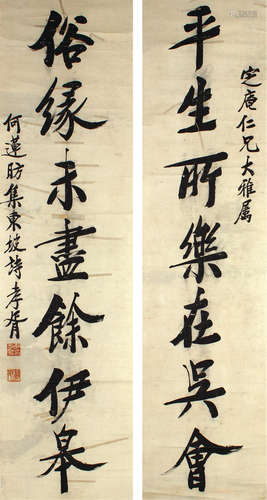 定庵仁兄大雅属
平生所樂在吳會
俗緣未盡餘伊皋
何蓮昉集東坡詩孝胥